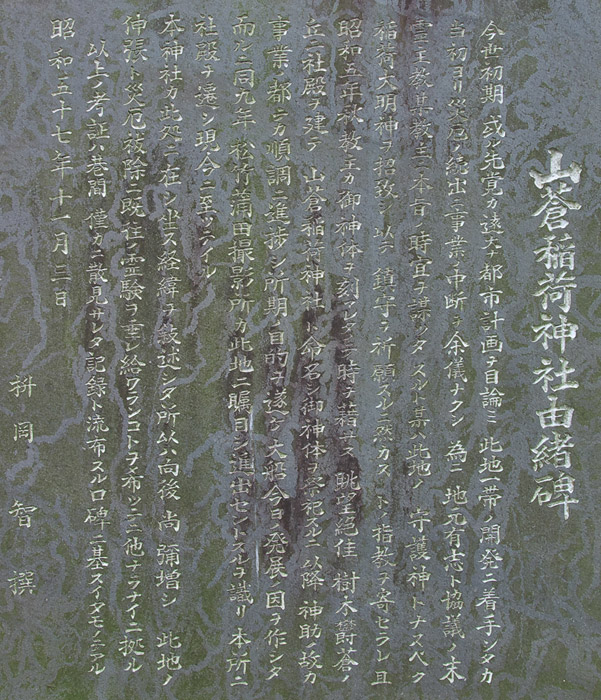 山蒼稲荷神社由緒碑
今世初期 或ル先覚カ遠大ナ都市計画ヲ目論ミ 此地一帯ノ開発ニ着手シタカ
当初ヨリ災厄ノ続出ニ事業ノ中断ヲ余儀ナクシ 為ニ地元有志ト協議ノ末
霊主教某教主ニ本旨ノ時宜ヲ諜ッタスルト某ハ此地ノ 守護神トナスベク
稲荷大明神ヲ招致シ 以テ 鎮守ヲ祈願スルニ然カスト ノ指教ヲ寄セラレ 且
昭和五年秋教主カ御神体ヲ刻シタニテ時ヲ藉サス 眺望絶佳 樹木欝蒼ノ
丘ニ社殿ヲ建テ 山蒼稲荷神社 ト命名シ御神体ヲ祭祀スルニ以降 神助ノ故カ
事業ノ都ニカ順調ニ進捗シ所期ノ目的ヲ遂ケ 大船今日ノ発展ノ因ヲ作シタ
而ルニ同九年 松竹蒲田撮影所カ此地ニ矚目シ進出セントスルヲ識リ 本所ニ
社殿ヲ遷シ現今ニ至ッテイル
本神社カ此処ニ在シ坐ス経緯ヲ敍述シタ所以ハ向後 尚 彌増シ 此地ノ
伸張ト災厄祓除ニ既往ノ霊験ヲ垂レ給ワランコトヲ布ッニ他ナラナイニ拠ル
以上ノ考証ハ巷間 僅カニ散見サレタ記録ト流布スル口碑ニ基スイタモノテアル
昭和五十七年十一月三日
枡岡 智 撰